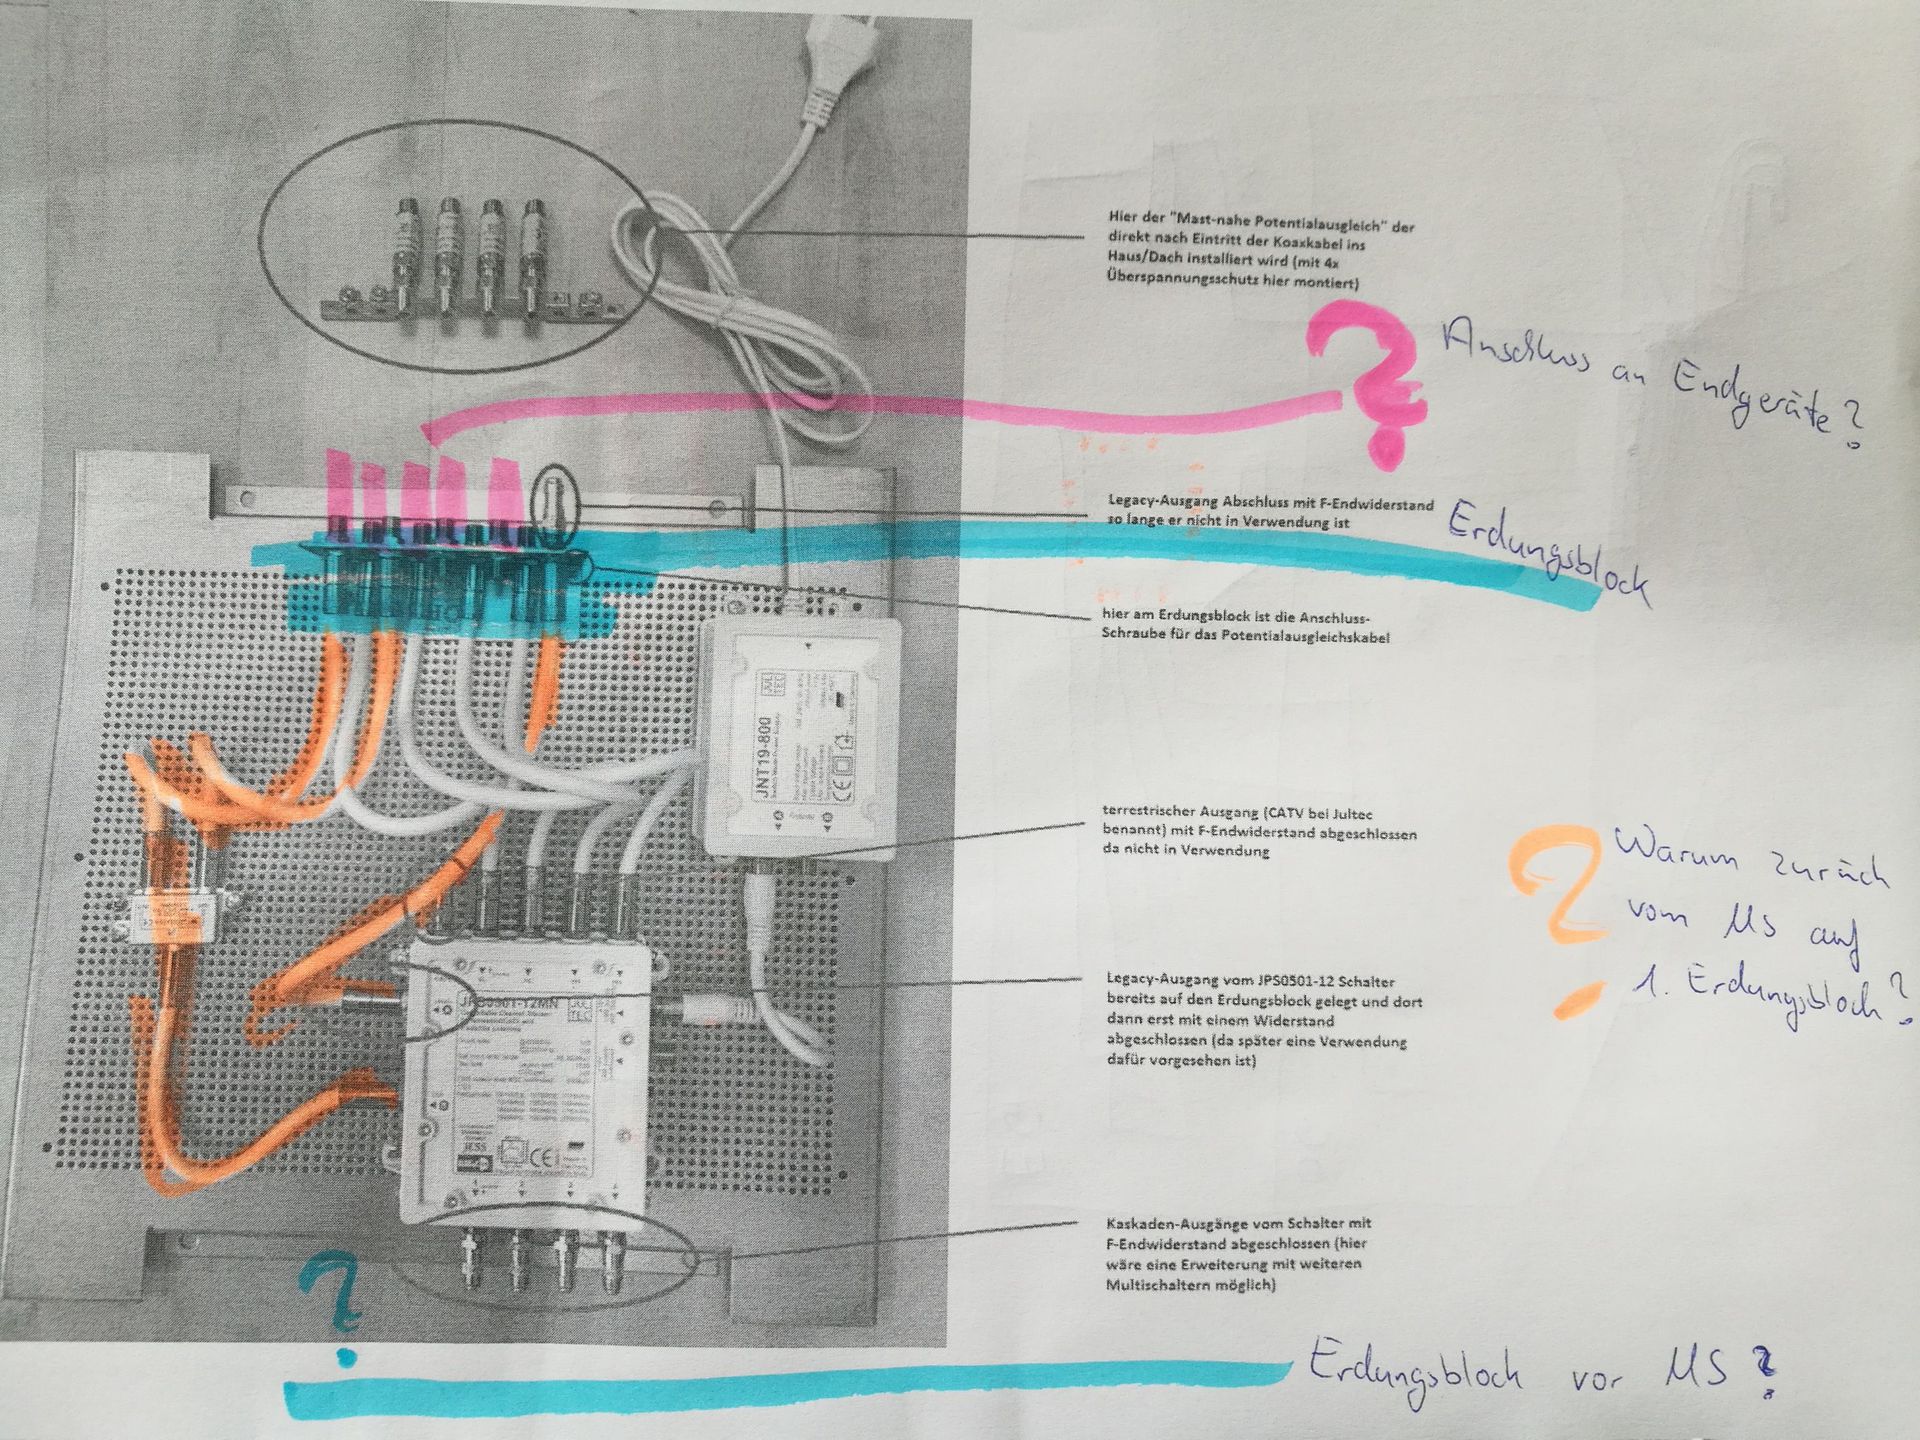 Hier der "Mast-nahe Potentialausgleich" der
direkt nach Eintritt der Koaxkabel ins
Haus/Dach installiert wird (mit 4x
Überspannungsschutz hier montiert)
Anschluss an Endgeräte?
Legacy-Ausgang Abschluss mit F-Endwiderstand
so lange er nicht in Verwendung ist
Erdungsblock
hier am Erdungsblock ist die Anschluss-
Schraube für das Potentialausgleichskabel
JUL
TEC
JNT19-800
terrestrischer Ausgang (CATV bei Jultec
benannt) mit F-Endwiderstand abgeschlossen
da nicht in Verwendung
? Warum zurück
vom MS auf
1. Erdungsblock?
Legacy-Ausgang vom JPS0501-12 Schalter
bereits auf den Erdungsblock gelegt und dort
dann erst mit einem Widerstand
abgeschlossen (da später eine Verwendung
dafür vorgesehen ist)
JPS0501-12MN
JUL
TEC
Kaskaden-Ausgänge vom Schalter mit
F-Endwiderstand abgeschlossen (hier
wäre eine Erweiterung mit weiteren
Multischaltern möglich)
?
Erdungsblock vor MS?